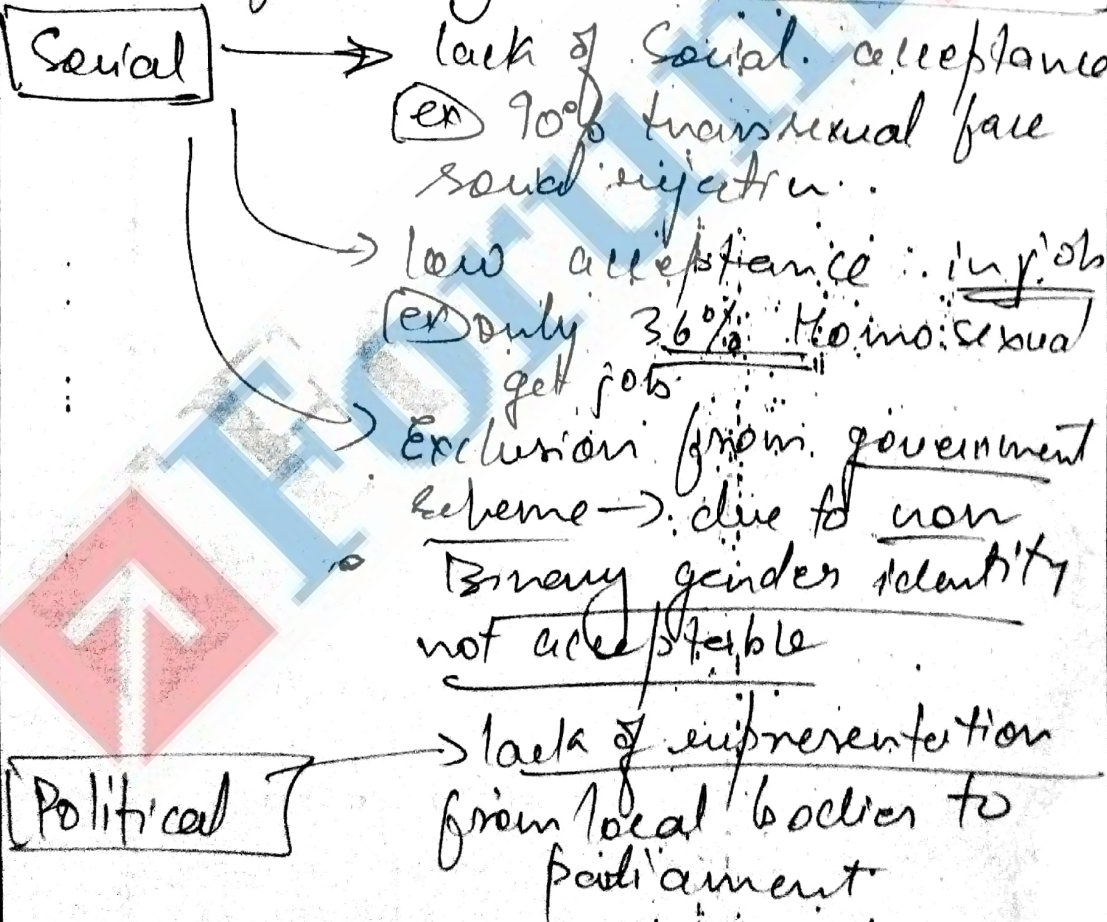 Social → lack of Social acceptance
(ex) 90% transsexual face
social rejection.
→ low acceptance in job
(ex) only 36% Homosexual
get job
→ Exclusion from government
scheme → due to non
Binary gender identity
not acceptable
Political → lack of representation
from local bodies to
parliament
Forum